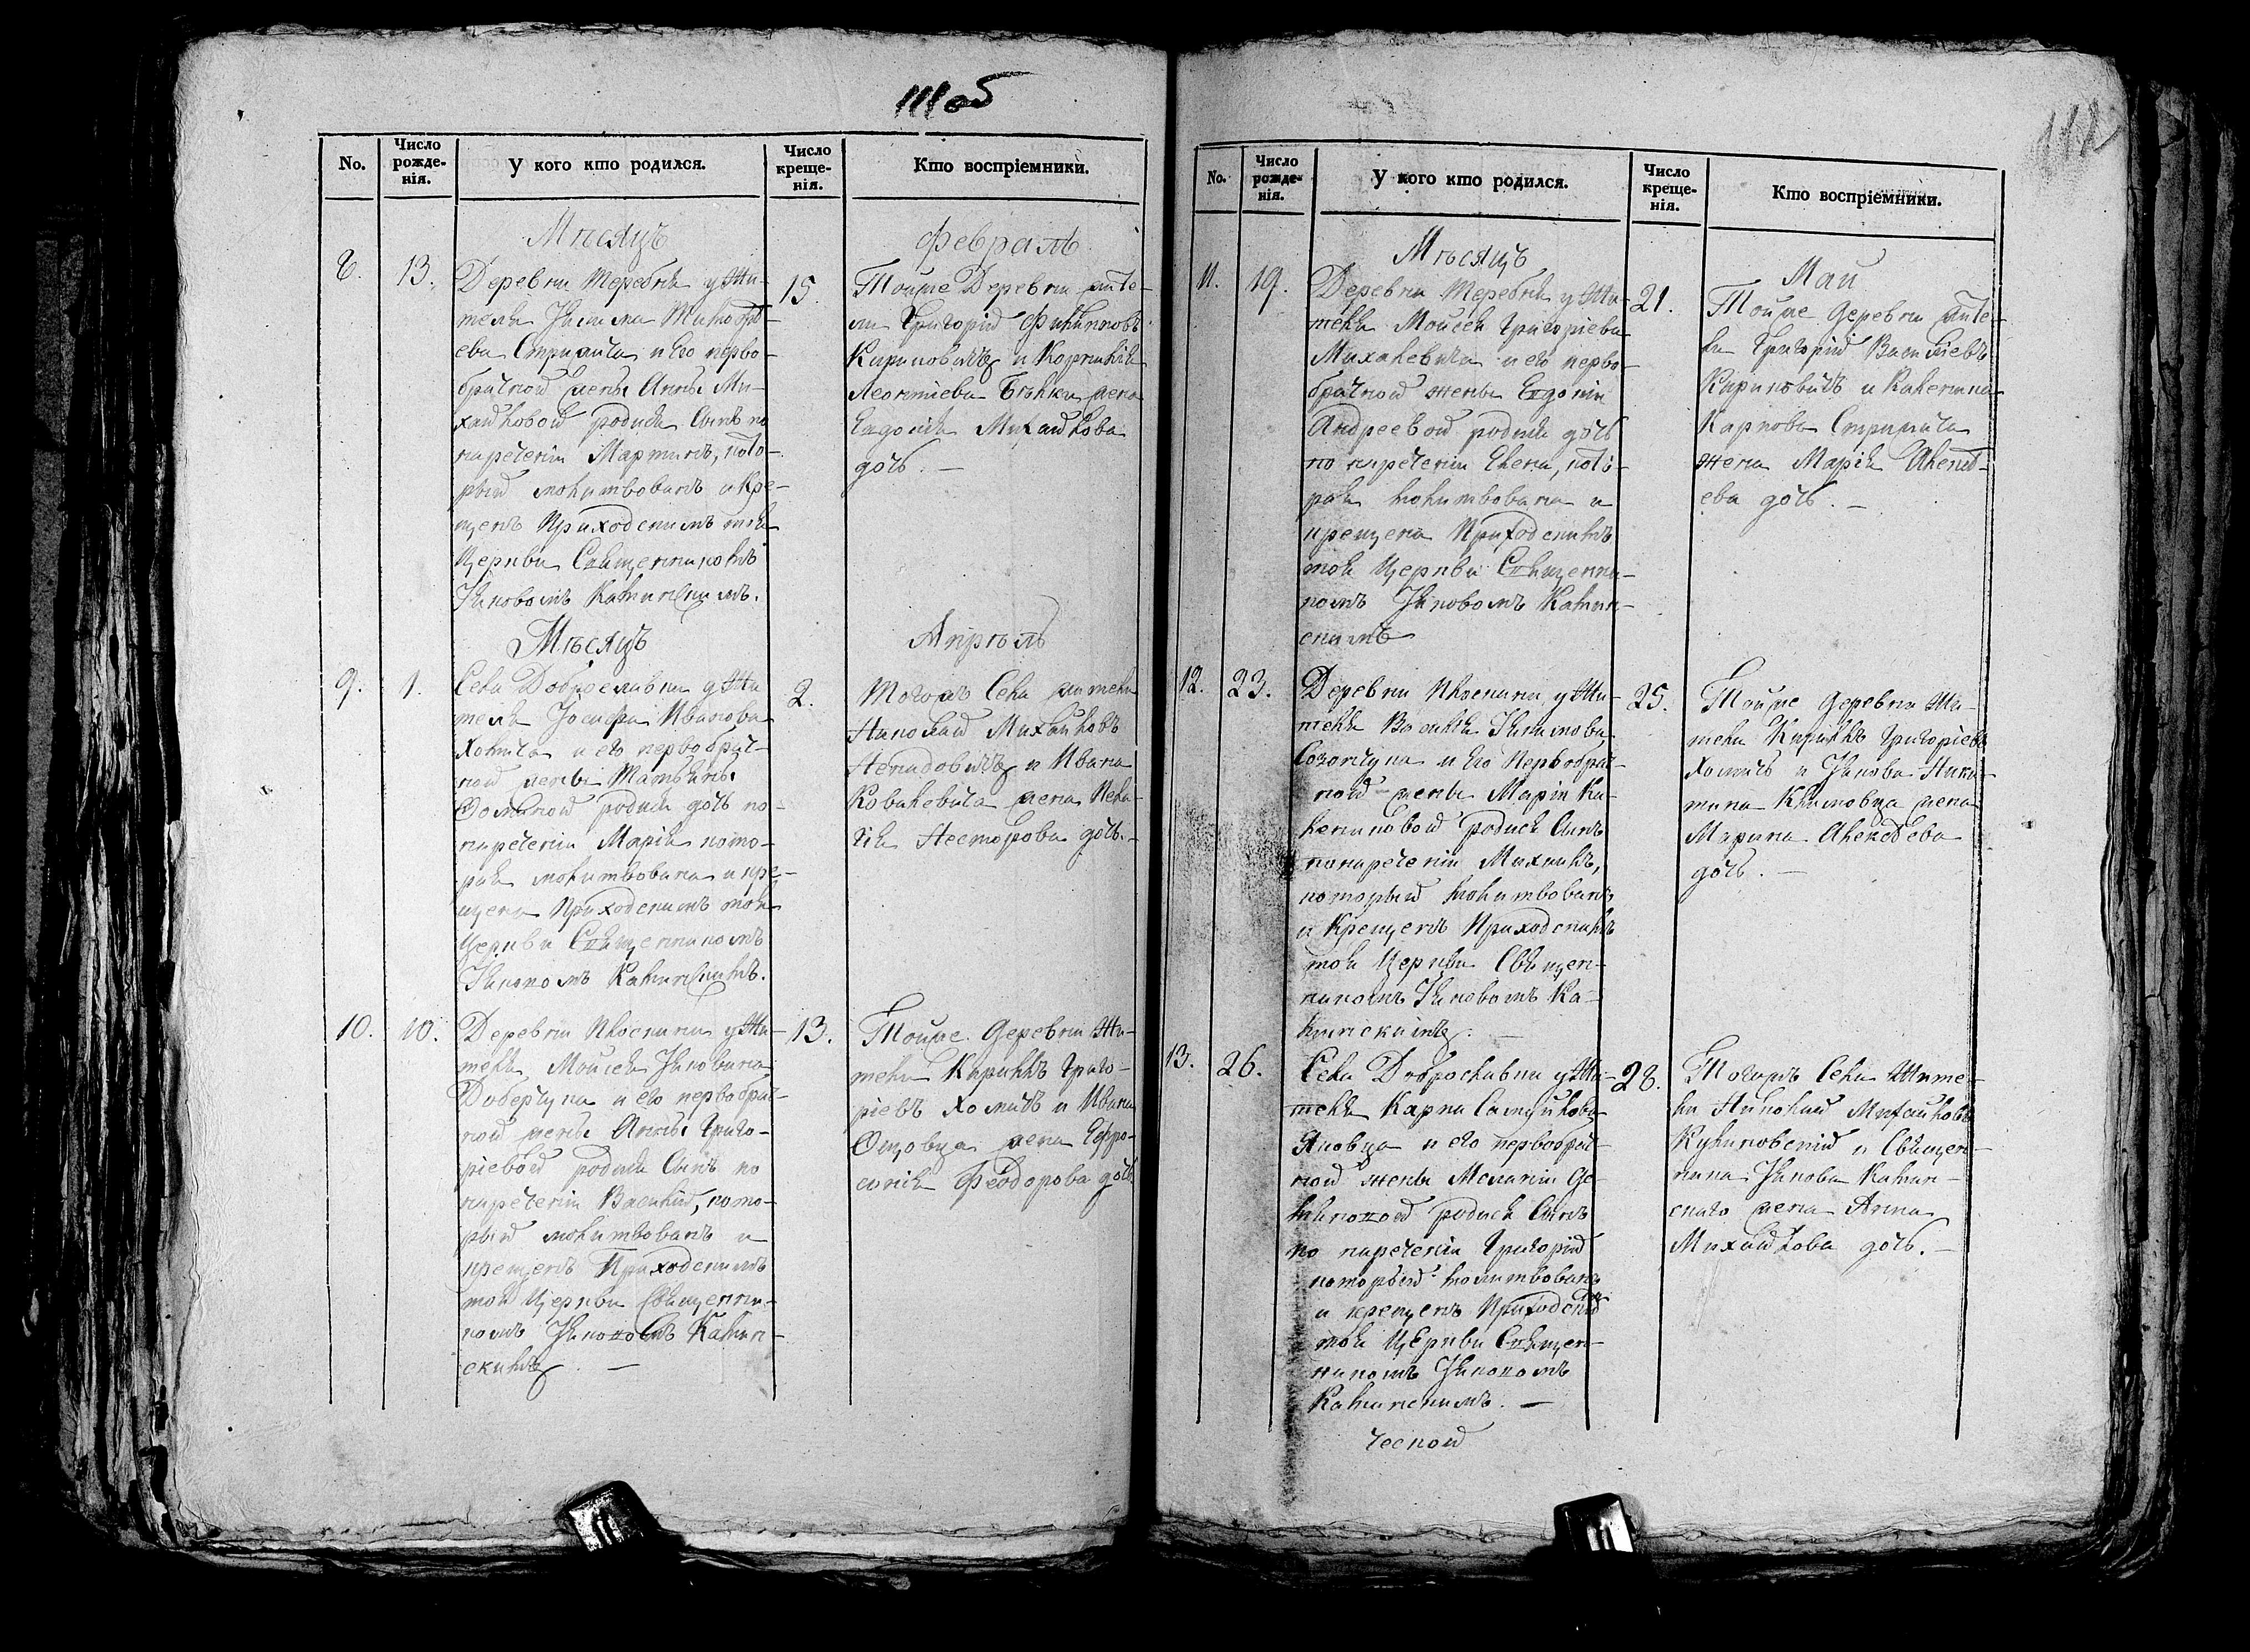 111 об
No.
Число рожде-нія.
У кого кто родился.
Число креще-нія.
Кто воспріемники.
Мѣсяцъ
Февраль
8.
13.
Деревни Теребня у Жи-
теля Якима
ева Стрижича и Его перво-
брачной жены Анны Ми-
хайловой родися Сынъ по
наречении Мартинъ, кото-
рый молитвованъ и Кре-
щенъ Приходскимъ тоя
Церкви Священникомъ
Яковомъ Калинскимъ.
15.
Тойже Деревни жите-
ли Григорій Филиповъ
Кириловичъ и Корнилія
Леонтіева жена
Евдокія Михайлова
дочь. —
Мѣсяцъ
Апрѣль
9.
1.
Села Доброславки у Жи
теля Іосифа Иванова
Хомича и его первобрач-
ной жены Татьяны
Фоминой родися дочь по-
наречении Марія кото-
рая молитвована и кре-
щена Приходскимъ тоя
Церкви Священникомъ
Яковомъ Калинскимъ.
2.
Тогожъ Села жители
Николай Михайловъ
Ненадовичъ и Ивана
Ковалевича жена Пела-
гія Несторова дочь. —
10.
10.
Деревни Плоскини у Жи-
теля Моисея Яковлева
и его первобрач-
ной жены Анны Григо-
ріевой родися Сынъ по
наречении Василій, кото-
рый молитвованъ и
крещенъ Приходскимъ
тоя Церкви Священни-
комъ Яковомъ Калин-
скимъ. —
13.
Тойже деревни Жи-
тели Кириллъ Григо-
ріевъ Хомичъ и Ивана
жена Ефро-
синія Феодорова дочь
112
No.
Число рожде-нія.
У кого кто родился.
Число креще-нія.
Кто воспріемники.
Мѣсяцъ
Май
11.
19.
Деревни Теребня у Жи-
теля Моисея Григоріева
Михалевича и его перво-
брачной жены Евдокіи
Андреевой родися дочь
по наречении Елена, кото-
рая молитвована и
крещена Приходскимъ
тоя Церкви Священни-
комъ Яковомъ Калин-
скимъ
21.
Тойже деревни жите-
ли Григорій Василіевъ
Кириловичъ и Калента
Карпова Стрижича
жена Марія Алексѣ-
ева дочь. —
12.
23.
Деревни Плоскини у Жи-
теля Василія Якимова
и Его Первобрач-
ной жены Маріи Ка-
лениковой родися Сынъ
понаречении Михаилъ,
который молитвованъ
и Крещенъ Приходскимъ
тоя Церкви Священ-
никомъ Яковомъ Ка-
линскимъ. —
25.
Тойже деревни Жи-
тели Кириллъ Григоріевъ
Хомичъ и Якова Ники-
тина Климовца жена
Марина Алексѣева
дочь. —
13.
26.
Села Доброславки у Жи-
теля Карпа Самуйлова
Яковца и его первобрач-
ной жены Меланіи Де-
родися Сынъ
по наречении Григорій
который молитвованъ
и крещенъ Приходскимъ
тоя Церкви Священ-
никомъ Яковомъ
Калинскимъ. —
28.
Тогожъ Села Жите-
ли Николай Михайловъ
и Священ-
ника Якова Калин-
скаго жена Анна
Михайлова дочь. —